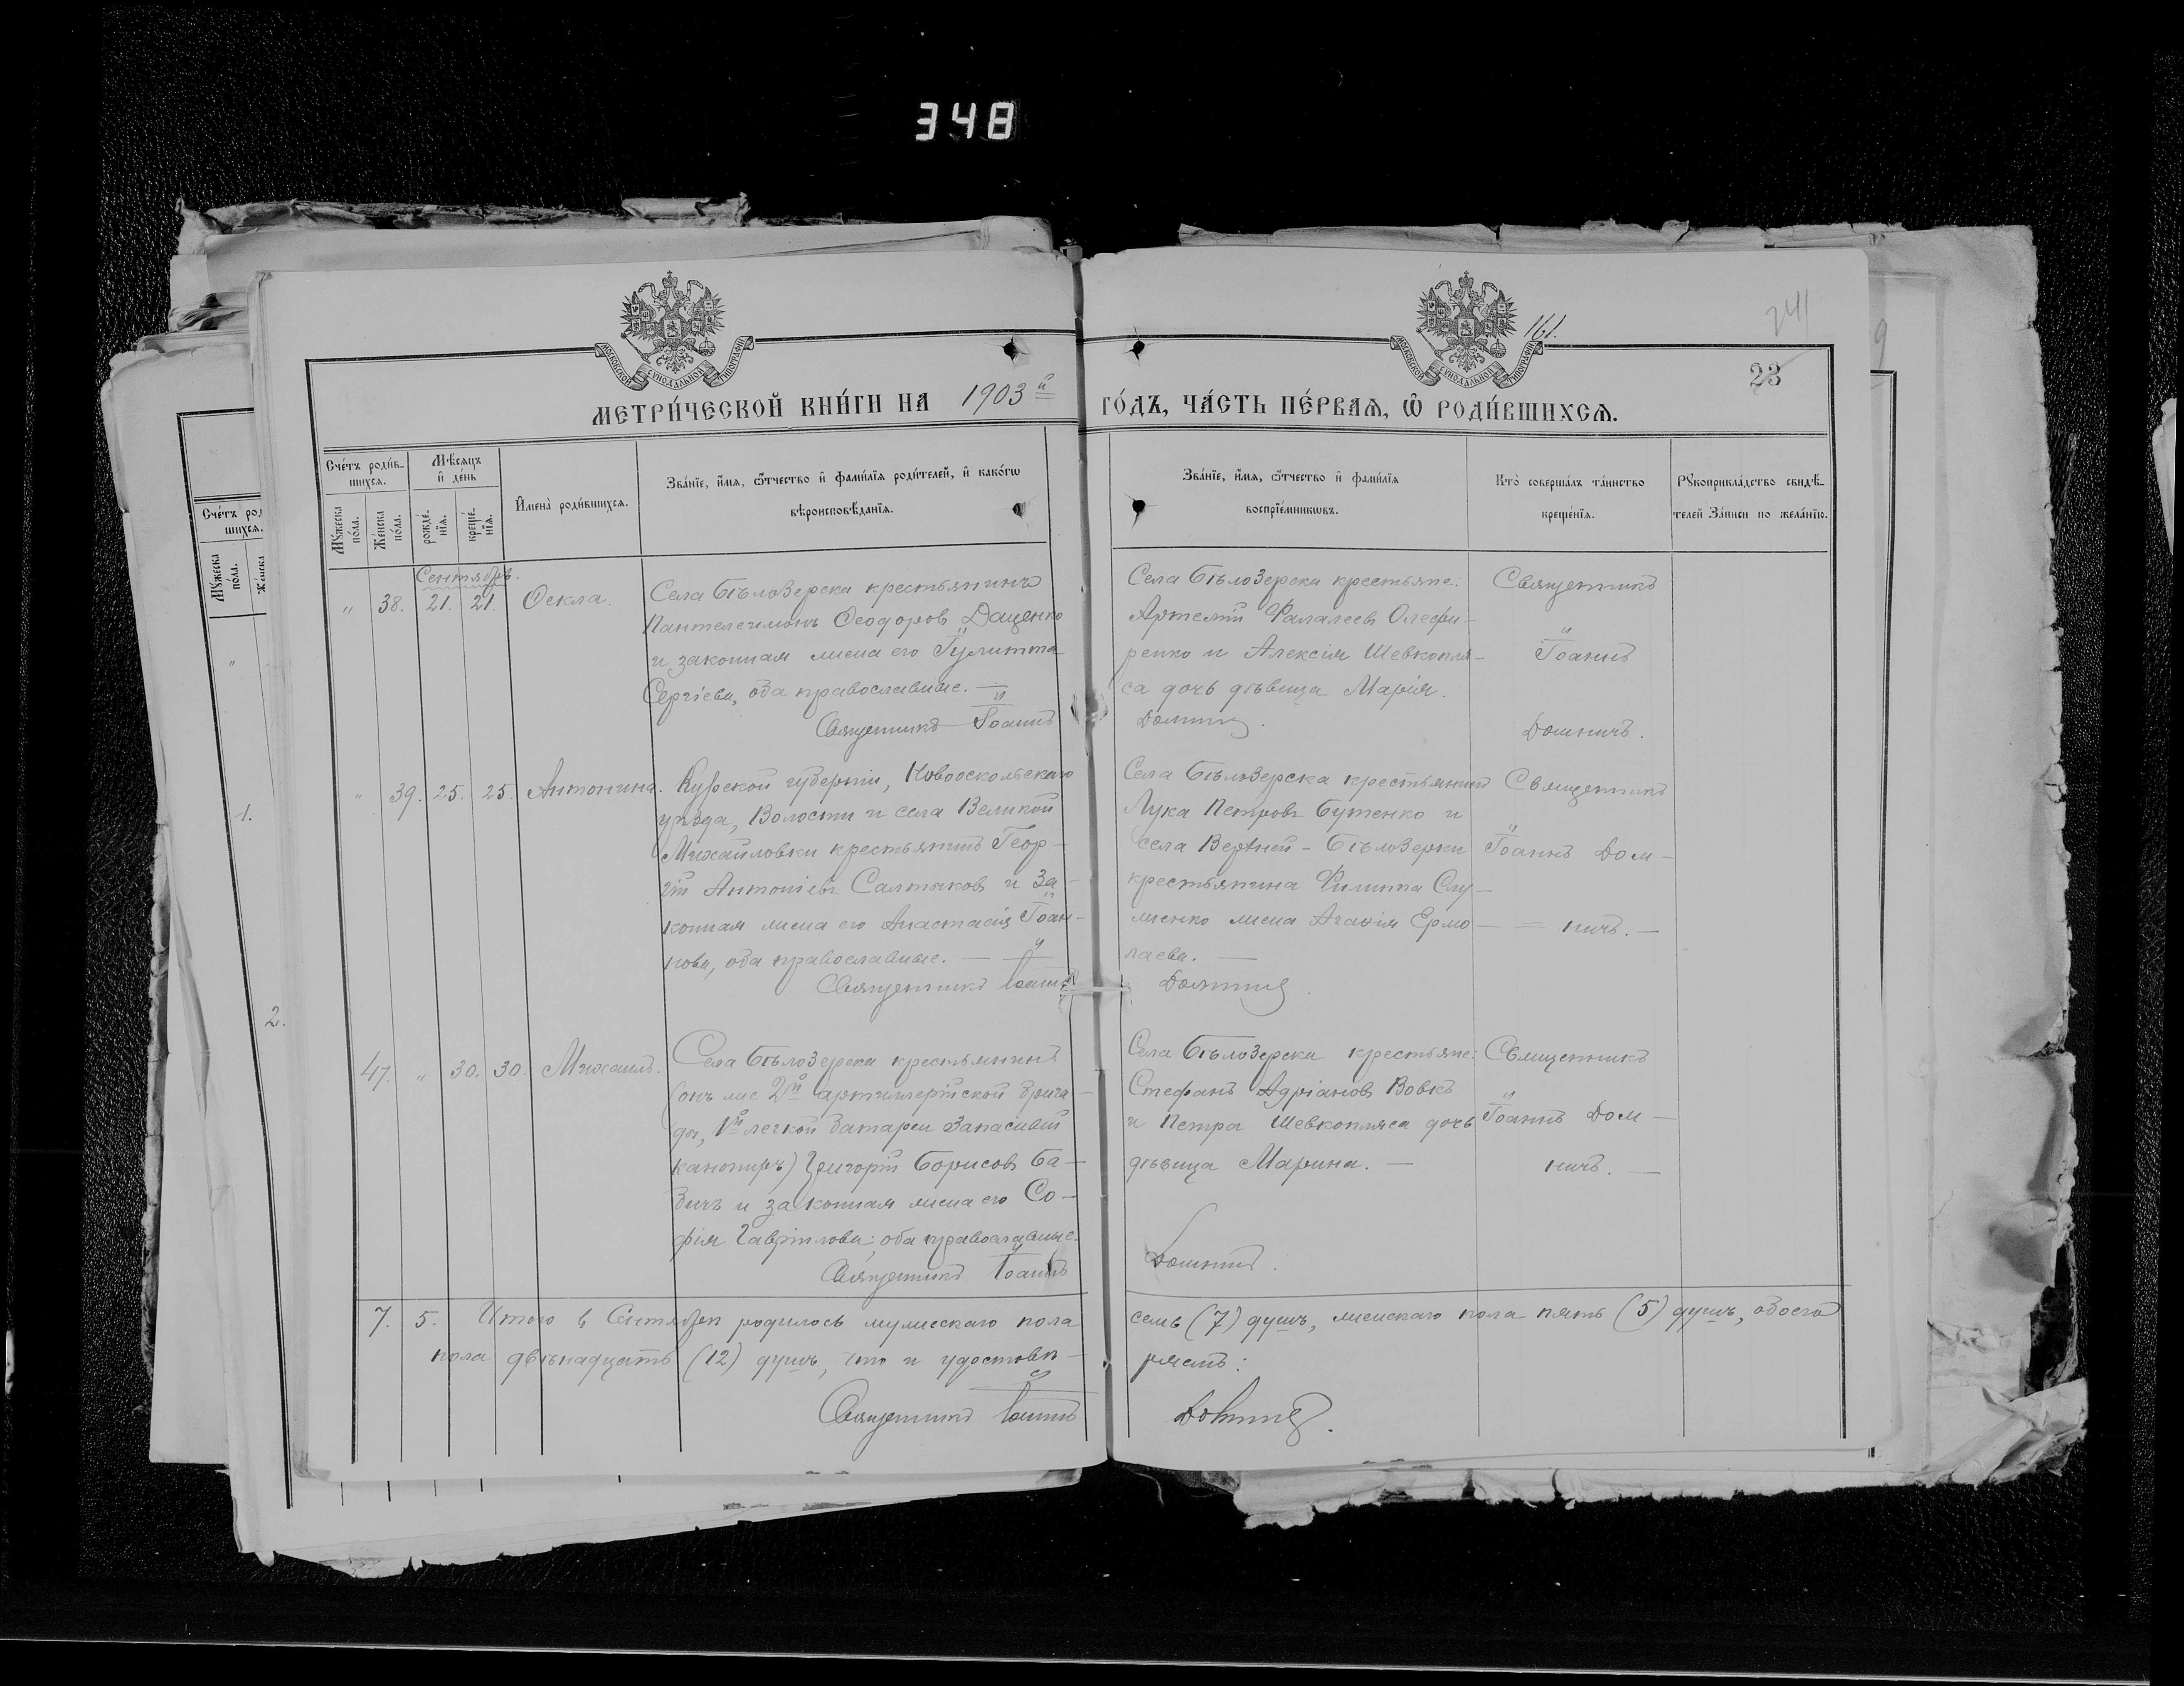 348
161.
241
23
МОСКОВСКОЙ СѴНОДАЛЬНОЙ ТИПОГРАФІИ
МОСКОВСКОЙ СѴНОДАЛЬНОЙ ТИПОГРАФІИ
МЕТРИ́ЧЕСКОЙ КНИ́ГИ НА 1903й ГО́ДЪ, ЧА́СТЬ ПЕ́РВАѦ, Ѡ҆ РОДИ́ВШИХСѦ.
Сче́тъ роди́в-
шихсѧ.
Мѣ́сѧцъ
и҆ де́нь
Мꙋ́жеска
по́ла.
Же́нска
по́ла.
рожде́-
нїѧ.
креще́-
нїѧ.
И҆мена̀ роди́вшихсѧ.
Зва́нїе, и҆́мѧ, ѻ҆́тчество и҆ фами́лїѧ роди́телей, и҆ како́гѡ
вѣроисповѣ́данїѧ.
Зва́нїе, и҆́мѧ, ѻ҆́тчество и҆ фами́лїѧ
воспрїе́мникѡвъ.
Кто̀ соверша́лъ та́инство
креще́нїѧ.
Рꙋкоприкла́дство свидѣ́-
телей за́писи по жела́нїю.
Сче́тъ ро
шихсѧ.
Мꙋ́жеска
по́ла.
Же́нска
"
1.
2.
9
Сентябрь.
" 38. 21. 21. Ѳекла.
Села Бѣлозерски крестьянинъ
Пантелеимонъ Ѳеодоровъ Даценко
и законная жена его Іулитта
Сергіева, оба православные. —
Священникъ Іоаннъ
Села Бѣлозерски крестьяне:
Артемій Фалалеевъ Олефи-
ренко и Алексія Шевкопля-
са дочь дѣвица Марія.
Домничъ.
Священникъ
Іоаннъ
Домничъ.
" 39. 25. 25. Антонина.
Курской губерніи, Новооскольскаго
уѣзда, Волости и села Великой
Михайловки крестьянинъ Геор-
гій Антоніевъ Салтыковъ и за-
конная жена его Анастасія Іоан-
нова, оба православные. —
Священникъ Іоаннъ
Села Бѣлозерска крестьянинъ
Лука Петровъ Бутенко и
села Верхней-Бѣлозерки
крестьянина Филиппа Слу-
женко жена Агаѳія Ермо-
лаева. —
Домничъ.
Священникъ
Іоаннъ Дом-
= ничъ. —
47. " 30. 30. Михаилъ.
Села Бѣлозерски крестьянинъ
(онъ же 2й артиллерійской брига-
ды, 1й легкой батареи запасный
канониръ) Григорій Борисовъ Ба-
бичъ и законная жена его Со-
фія Гавріилова; оба православные.
Священникъ Іоаннъ
Села Бѣлозерски крестьяне:
Стефанъ Адріановъ Вовкъ
и Петра Шевкопляса дочь
дѣвица Марина. —
Домничъ.
Священникъ
Іоаннъ Дом-
ничъ. —
7. 5. Итого въ Сентябрѣ родилось мужескаго пола семь (7) душъ, женскаго пола пять (5) душъ, обоего
пола двѣнадцать (12) душъ, что и удостовѣ-ряемъ:
Священникъ Іоаннъ Домничъ.